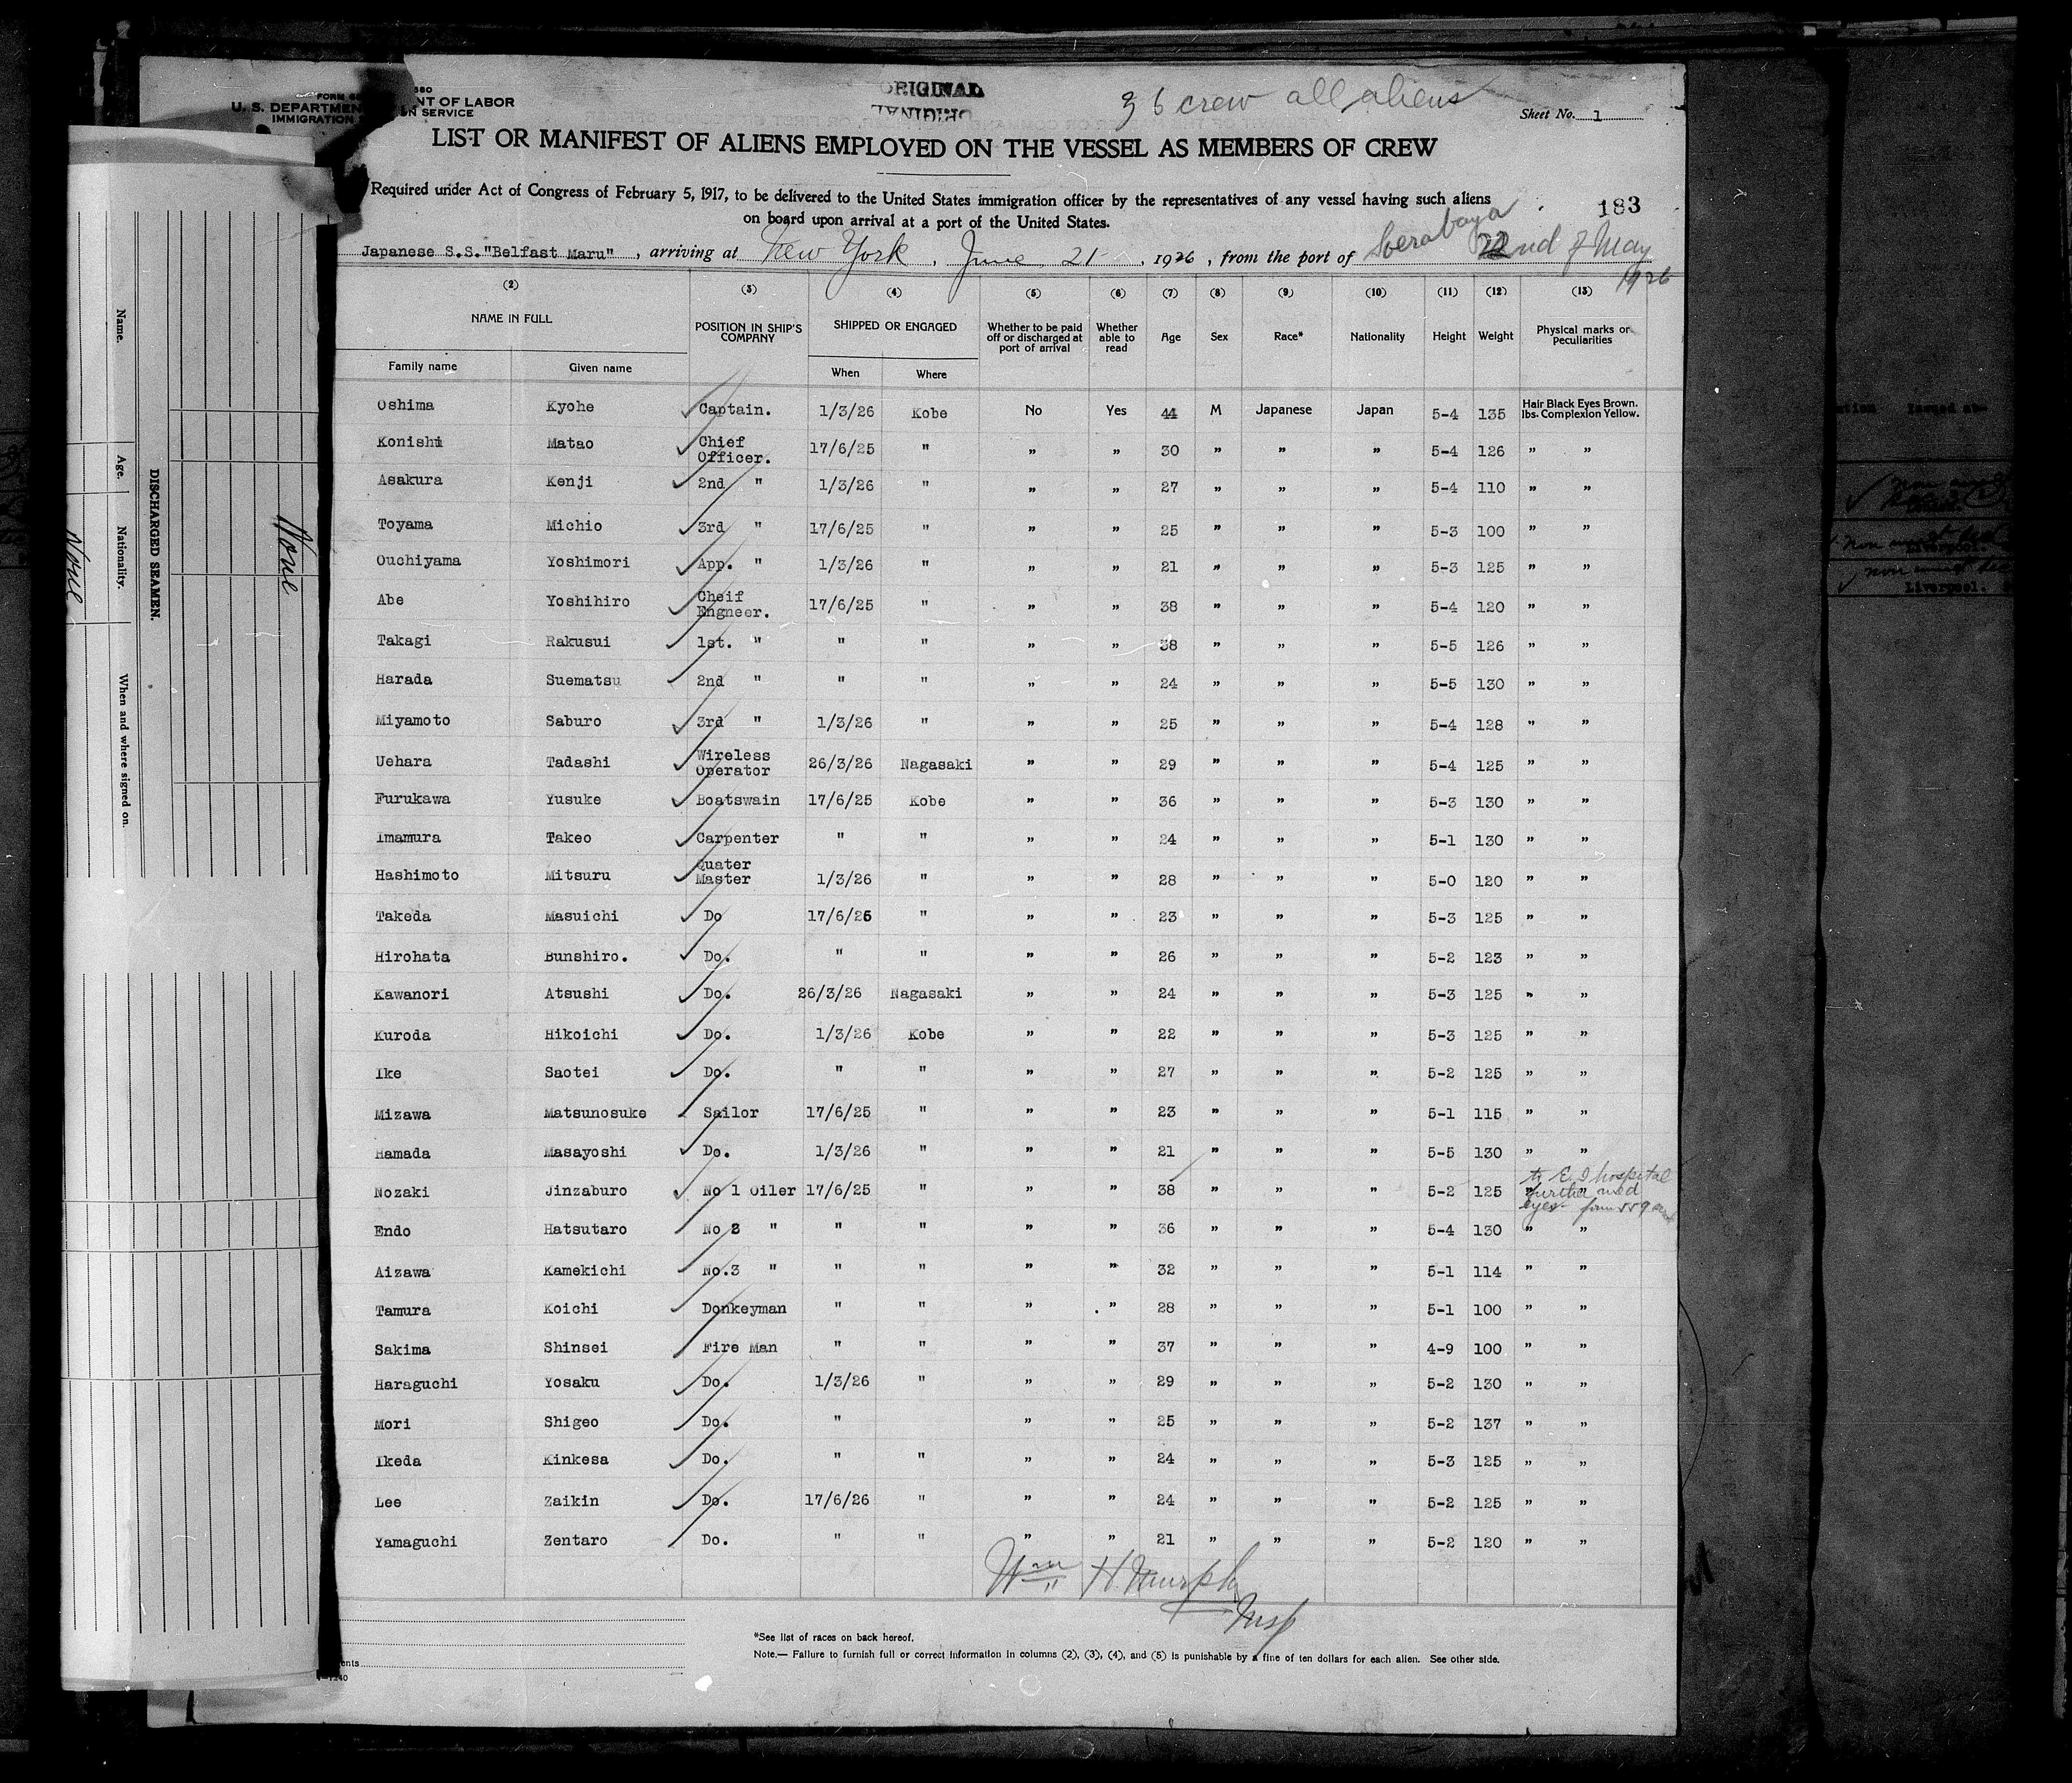 U. S. DEPARTMEN NT OF LABOR
IMMIGRATION ON SERVICE
ORIGINAL
ORIGINAL
36 crew all aliens
Sheet No. 1
LIST OR MANIFEST OF ALIENS EMPLOYED ON THE VESSEL AS MEMBERS OF CREW
Required under Act of Congress of February 5, 1917, to be delivered to the United States immigration officer by the representatives of any vessel having such aliens
on board upon arrival at a port of the United States.
183
Japanese S.S."Belfast Maru" , arriving at New York , June 21 , 1926 , from the port of Soerabaya 22nd of May
1926
(2) (3) (4) (5) (6) (7) (8) (9) (10) (11) (12) (13)
NAME IN FULL POSITION IN SHIP'S COMPANY SHIPPED OR ENGAGED Whether to be paid off or discharged at port of arrival Whether able to read Age Sex Race* Nationality Height Weight Physical marks or Peculiarities
Family name Given name When Where
Oshima Kyohe Captain. 1/3/26 Kobe No Yes 44 M Japanese Japan 5-4 135 lbs. Hair Black Eyes Brown. Complexion Yellow.
Konishi Matao Chief Officer. 17/6/25 " " " 30 " " " 5-4 126 " "
Asakura Kenji 2nd " 1/3/26 " " " 27 " " " 5-4 110 " "
Toyama Michio 3rd " 17/6/25 " " " 25 " " " 5-3 100 " "
Ouchiyama Yoshimori App. " 1/3/26 " " " 21 " " " 5-3 125 " "
Abe Yoshihiro Cheif Engneer. 17/6/25 " " " 38 " " " 5-4 120 " "
Takagi Rakusui 1st. " " " " " 38 " " " 5-5 126 " "
Harada Suematsu 2nd " " " " " 24 " " " 5-5 130 " "
Miyamoto Saburo 3rd " 1/3/26 " " " 25 " " " 5-4 128 " "
Uehara Tadashi Wireless Operator 26/3/26 Nagasaki " " 29 " " " 5-4 125 " "
Furukawa Yusuke Boatswain 17/6/25 Kobe " " 36 " " " 5-3 130 " "
Imamura Takeo Carpenter " " " " 24 " " " 5-1 130 " "
Hashimoto Mitsuru Quater Master 1/3/26 " " " 28 " " " 5-0 120 " "
Takeda Masuichi Do 17/6/26 " " " 23 " " " 5-3 125 " "
Hirohata Bunshiro. Do. " " " " 26 " " " 5-2 123 " "
Kawanori Atsushi Do. 26/3/26 Nagasaki " " 24 " " " 5-3 125 " "
Kuroda Hikoichi Do. 1/3/26 Kobe " " 22 " " " 5-3 125 " "
Ike Saotei Do. " " " " 27 " " " 5-2 125 " "
Mizawa Matsunosuke Sailor 17/6/25 " " " 23 " " " 5-1 115 " "
Hamada Masayoshi Do. 1/3/26 " " " 21 " " " 5-5 130 " "
Nozaki Jinzaburo No 1 Oiler 17/6/25 " " " 38 " " " 5-2 125 " "
to E I hospital
further med
eyes form 559
Endo Hatsutaro No 2 " " " " " 36 " " " 5-4 130 " "
Aizawa Kamekichi No.3 " " " " " 32 " " " 5-1 114 " "
Tamura Koichi Donkeyman " " " " 28 " " " 5-1 100 " "
Sakima Shinsei Fire Man " " " " 37 " " " 4-9 100 " "
Haraguchi Yosaku Do. 1/3/26 " " " 29 " " " 5-2 130 " "
Mori Shigeo Do. " " " 25 " " " 5-2 137 " "
Ikeda Kinkesa Do. " " " " 24 " " " 5-3 125 " "
Lee Zaikin Do. 17/6/26 " " " 24 " " " 5-2 125 " "
Yamaguchi Zentaro Do. " " " " 21 " " " 5-2 120 " "
Wm H. Murphy
Insp
*See list of races on back hereof.
Note.— Failure to furnish full or correct information in columns (2), (3), (4), and (5) is punishable by a fine of ten dollars for each alien. See other side.
DISCHARGED SEAMEN.
Name. Age. Nationality. When and where signed on.
None
None
Liverpool.